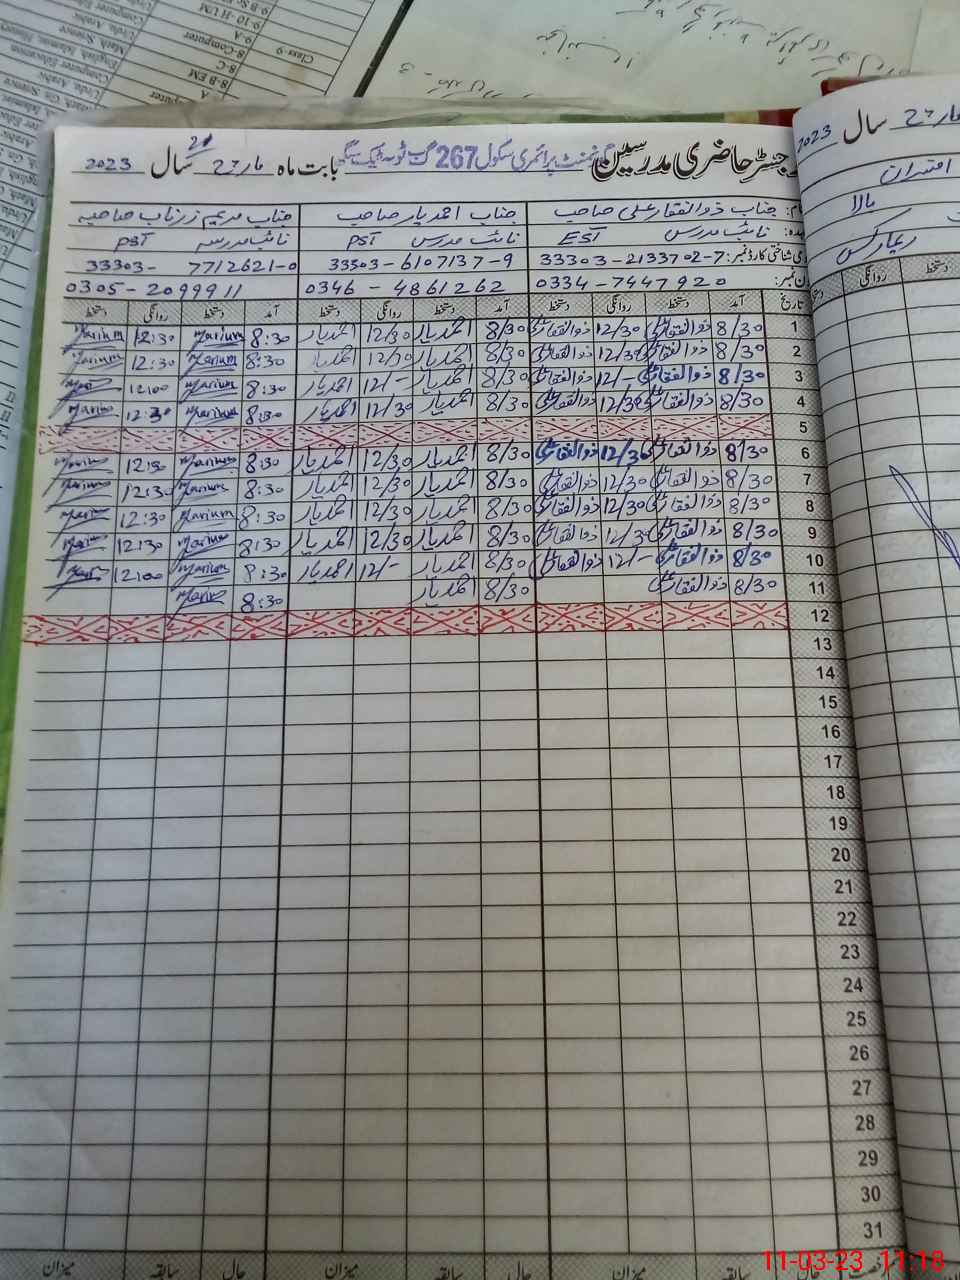 رجسٹر حاضری مدرسین گورنمنٹ پرائمری سکول 267 گ ب ٹوبہ ٹیک سنگھ بابت ماہ مارچ سال 2023
جناب ذوالفقار علی صاحب جناب احمد یار صاحب جناب مریم زرناب صاحبہ
نائب مدرس EST نائب مدرس PST نائب مدرسہ PST
شناختی کارڈ نمبر: 33303-2133702-7 33303-6107137-9 33303-7712621-0
0334-7447920 0346-4861262 0305-2099911
تاریخ آمد دستخط روانگی دستخط آمد دستخط روانگی دستخط آمد دستخط روانگی دستخط
1 8/30 ذوالفقار علی 12/30 ذوالفقار علی 8/30 احمد یار 12/30 احمد یار 8:30 Marium 12:30 Marium
2 8/30 ذوالفقار علی 12/30 ذوالفقار علی 8/30 احمد یار 12/30 احمد یار 8:30 Marium 12:30 Marium
3 8/30 ذوالفقار علی 12/- ذوالفقار علی 8/30 احمد یار 12/- احمد یار 8:30 Marium 12:00
4 8/30 ذوالفقار علی 12/30 ذوالفقار علی 8/30 احمد یار 12/30 احمد یار 8:30 Marium 12:30 Marium
5
6 8/30 ذوالفقار علی 12/30 ذوالفقار علی 8/30 احمد یار 12/30 احمد یار 8:30 Marium 12:30 Marium
7 8/30 ذوالفقار علی 12/30 ذوالفقار علی 8/30 احمد یار 12/30 احمد یار 8:30 Marium 12:30 Marium
8 8/30 ذوالفقار علی 12/30 ذوالفقار علی 8/30 احمد یار 12/30 احمد یار 8:30 Marium 12:30
9 8/30 ذوالفقار علی 12/30 ذوالفقار علی 8/30 احمد یار 12/30 احمد یار 8:30 Marium 12:30
10 8/30 ذوالفقار علی 12/- ذوالفقار علی 8/30 احمد یار 12/- احمد یار 8:30 Marium 12:00
11 8/30 ذوالفقار علی 8/30 احمد یار 8:30 Marium
12
13
14
15
16
17
18
19
20
21
22
23
24
25
26
27
28
29
30
31
حال میزان سابقہ حال میزان سابقہ حال سابقہ میزان
2023 سال مارچ
افسران
بالا
ریمارکس
روانگی دستخط
Class-9
9-10-HUM
9-A
8-Computer
8-C
8-B EM
11-03-23 11:18